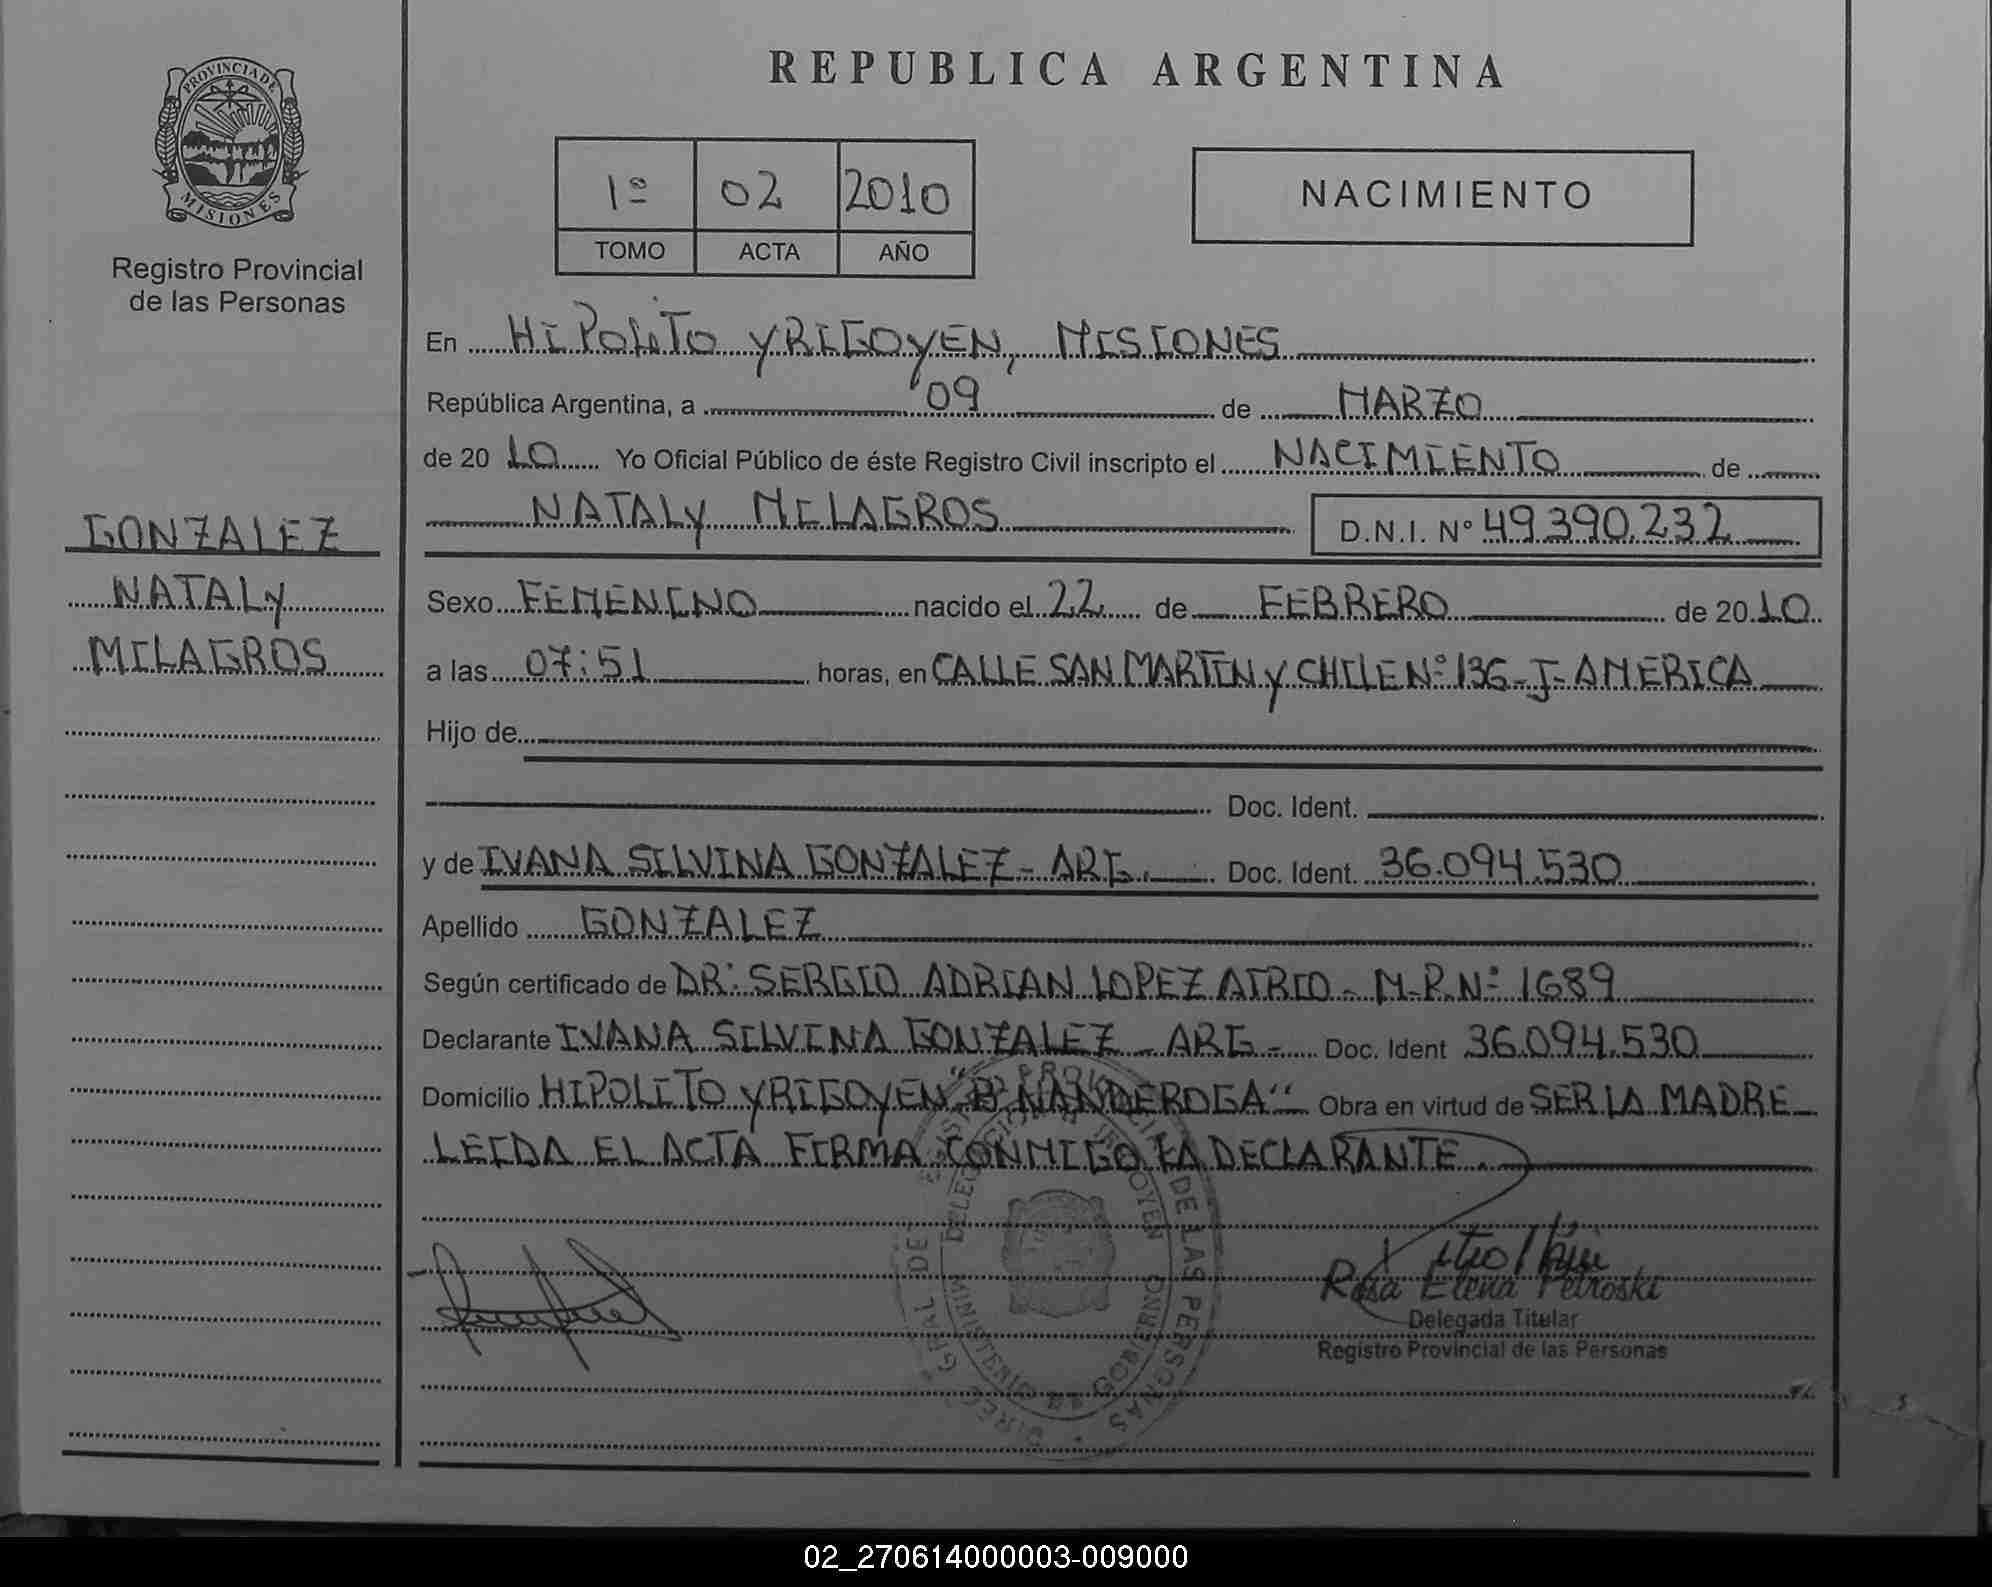 PROVINCIA DE
MISIONES
Registro Provincial
de las Personas
REPUBLICA ARGENTINA
1º 02 2010
TOMO ACTA AÑO
NACIMIENTO
En HIPOLITO YRIGOYEN, MISIONES
República Argentina, a 09 de MARZO
de 20 10 Yo Oficial Público de éste Registro Civil inscripto el NACIMIENTO de
NATALY MILAGROS D.N.I. Nº 49.390.232
GONZALEZ
NATALY
MILAGROS
Sexo FEMENINO nacido el 22 de FEBRERO de 20 10
a las 07:51 horas, en CALLE SAN MARTIN Y CHILE Nº 136 - J- AMERICA
Hijo de
Doc. Ident.
y de IVANA SILVINA GONZALEZ - ARG. Doc. Ident. 36.094.530
Apellido GONZALEZ
Según certificado de DR: SERGIO ADRIAN LOPEZ AIRIO - M.P.Nº 1689
Declarante IVANA SILVINA GONZALEZ - ARG - Doc. Ident 36.094.530
Domicilio HIPOLITO YRIGOYEN "Bº ÑANDEROGA" Obra en virtud de SER LA MADRE
LEIDA EL ACTA FIRMA CONMIGO LA DECLARANTE.
DE LAS PERSONAS
MINISTERIO DE GOBIERNO
Rosa Elena Petroski
Delegada Titular
Registro Provincial de las Personas
02_270614000003-009000